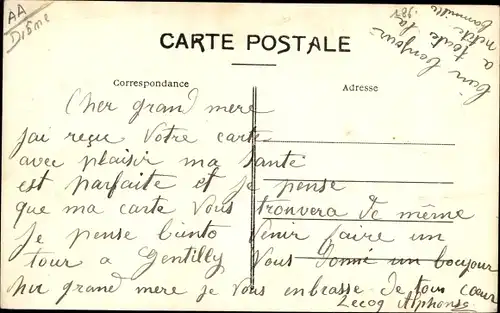 AA
Disme
bien bonjour
a toute la
CARTE POSTALE
Correspondance
Adresse
Cher grand mere
jai reçu votre carte
avec plaisir ma santé
est parfaite et je pense
que ma carte vous trouvera de même
je pense biento venir faire un
tour a Gentilly vous donné un boujour
cher grand mere je vous enbrasse de tou cœur
Lecoq Alphonse